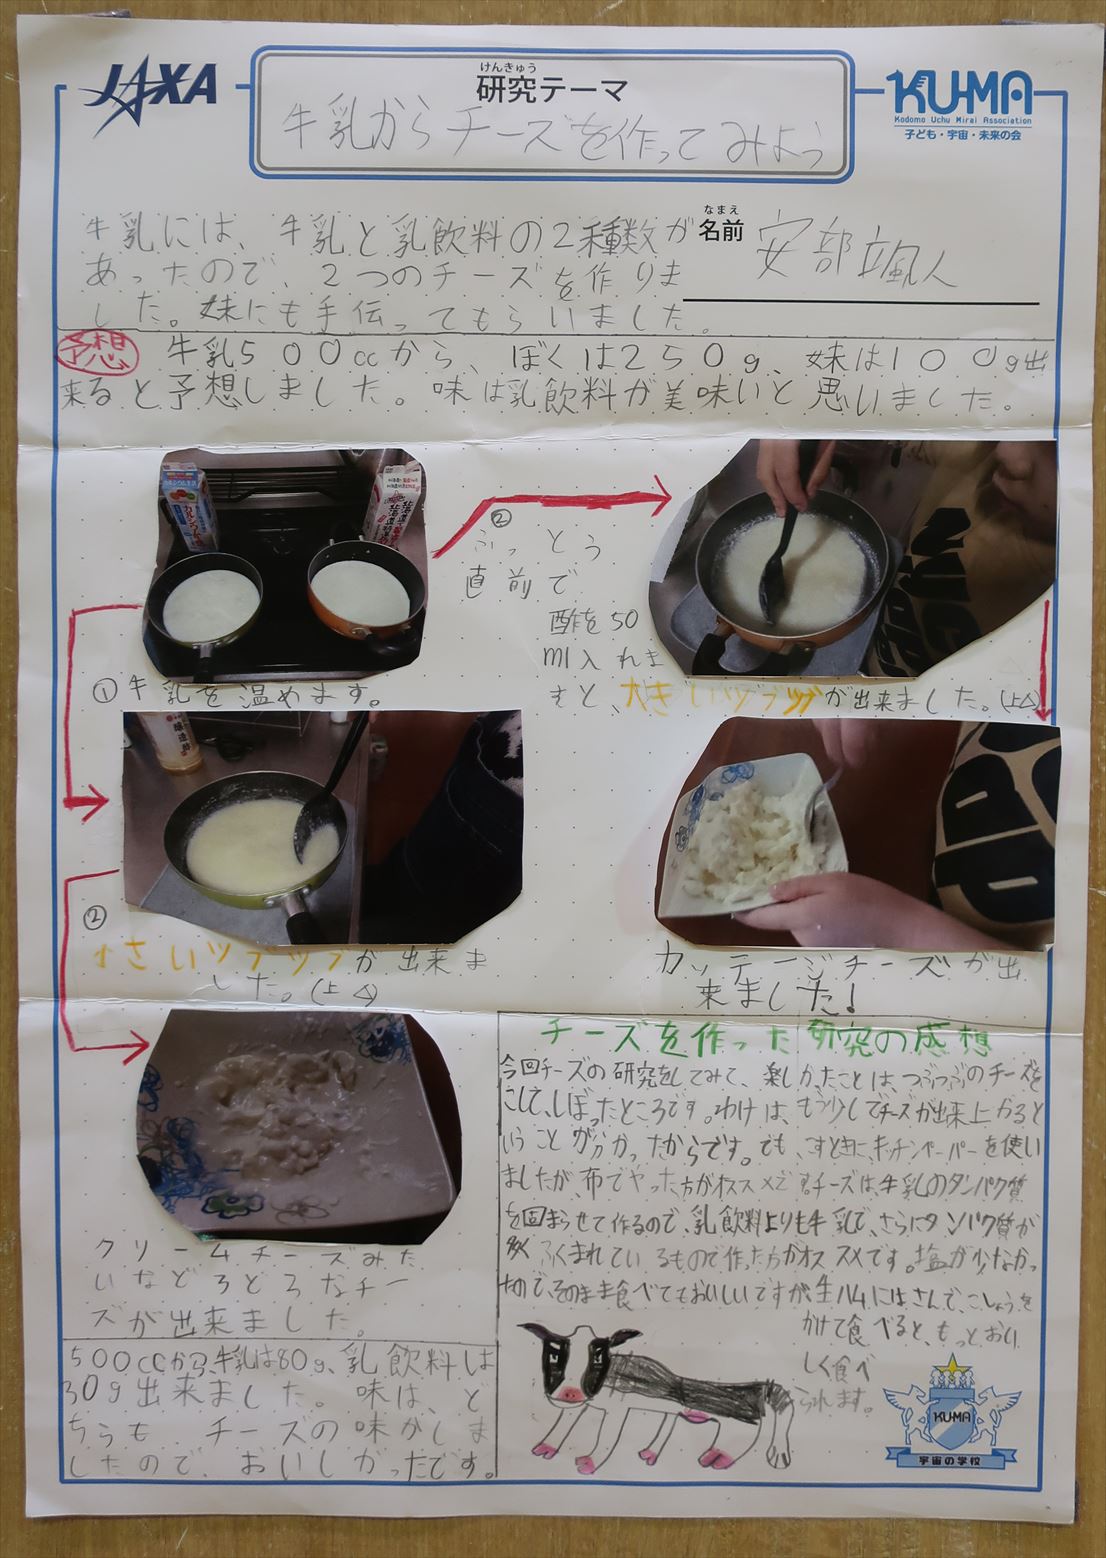 JAXA
けんきゅう
研究テーマ
牛乳からチーズを作ってみよう
KU-MA
Kodomo Uchu Mirai Association
子ども・宇宙・未来の会
なまえ
名前
安部颯人
牛乳には、牛乳と乳飲料の2種数が
あったので、2つのチーズを作りま
した。妹にも手伝ってもらいました。
予想
牛乳500ccから、ぼくは250g、妹は100g出
来ると予想しました。味は乳飲料が美味いと思いました。
①牛乳を温めます。
②
ふっとう
直前で
酢を50
ml入れま
すと、大きいツブツブが出来ました。(上△)
②
小さいツブツブが出来ま
した。(上△)
カッテージチーズが出
来ました!
クリームチーズみた
いなどろどろなチー
ズが出来ました。
500ccから牛乳は80g、乳飲料は
30g出来ました。味は、ど
ちらも、チーズの味がしま
したので、おいしかったです。
チーズを作った研究の感想
今回チーズの研究をしてみて、楽しかったことは、つぶつぶのチーズを
こして、しぼったところです。わけは、もう少しでチーズが出来上がると
いうことが分かったからです。でも、こすときに、キッチンペーパーを使い
ましたが、布でやった方がオススメです。チーズは、牛乳のタンパク質
を固まらせて作るので、乳飲料よりも牛乳で、さらにタンパク質が
多くふくまれているもので作った方がオススメです。塩が少なかっ
たので、そのまま食べてもおいしいですが、生ハムにはさんで、こしょうを
かけて食べると、もっとおい
しく食べ
られます。
KU-MA
宇宙の学校